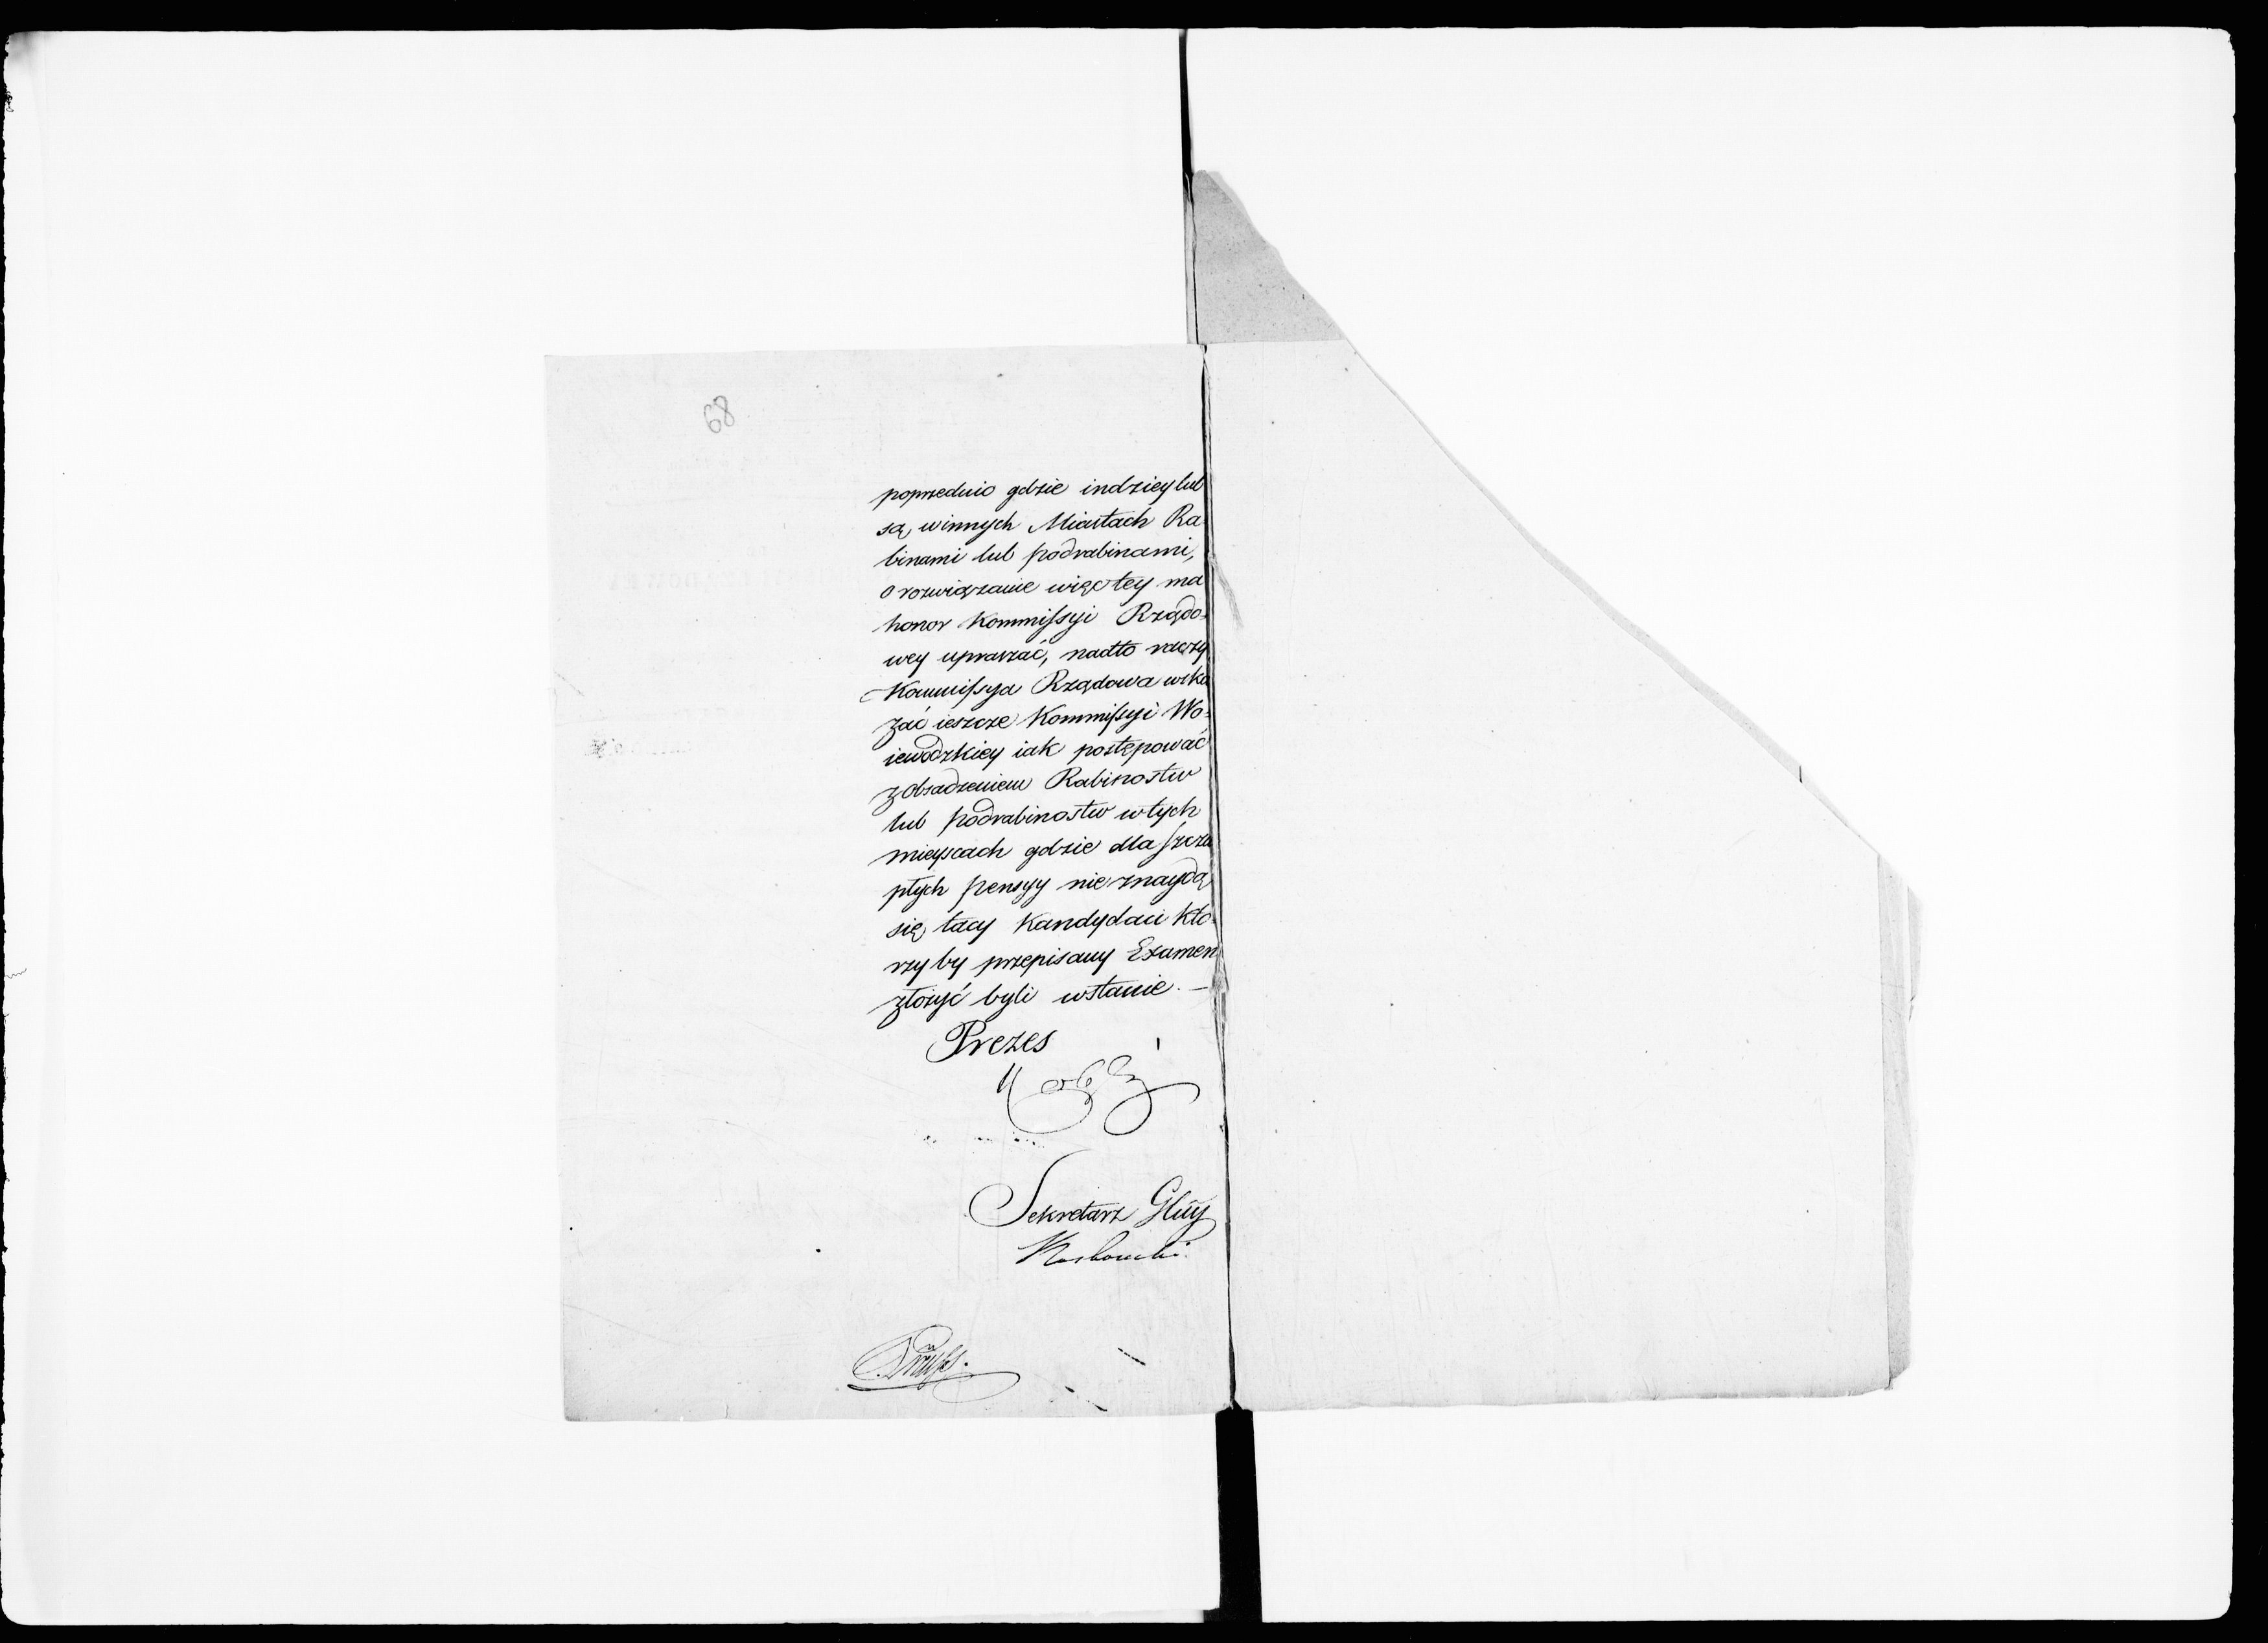 68
poprzednio gdzie indziey lub
są winnych Miastach Ra
binami lub podrabinami,
o rozwiązanie więc tey ma
honor Kommissyi Rządo-
wey upraszać, nadto raczy
Kommissya Rządowa wska
zać ieszcze Kommissyi Wo-
iewodzkiey iak postępować
z obsadzeniem Rabinostw
lub podrabinostw wtych
mieyscach gdzie dla szczu
płych pensyy nie znaydą
się tacy Kandydaci kto-
rzy by przepisany Examen
złożyć byli wstanie. —
Prezes
Sekretarz Glny